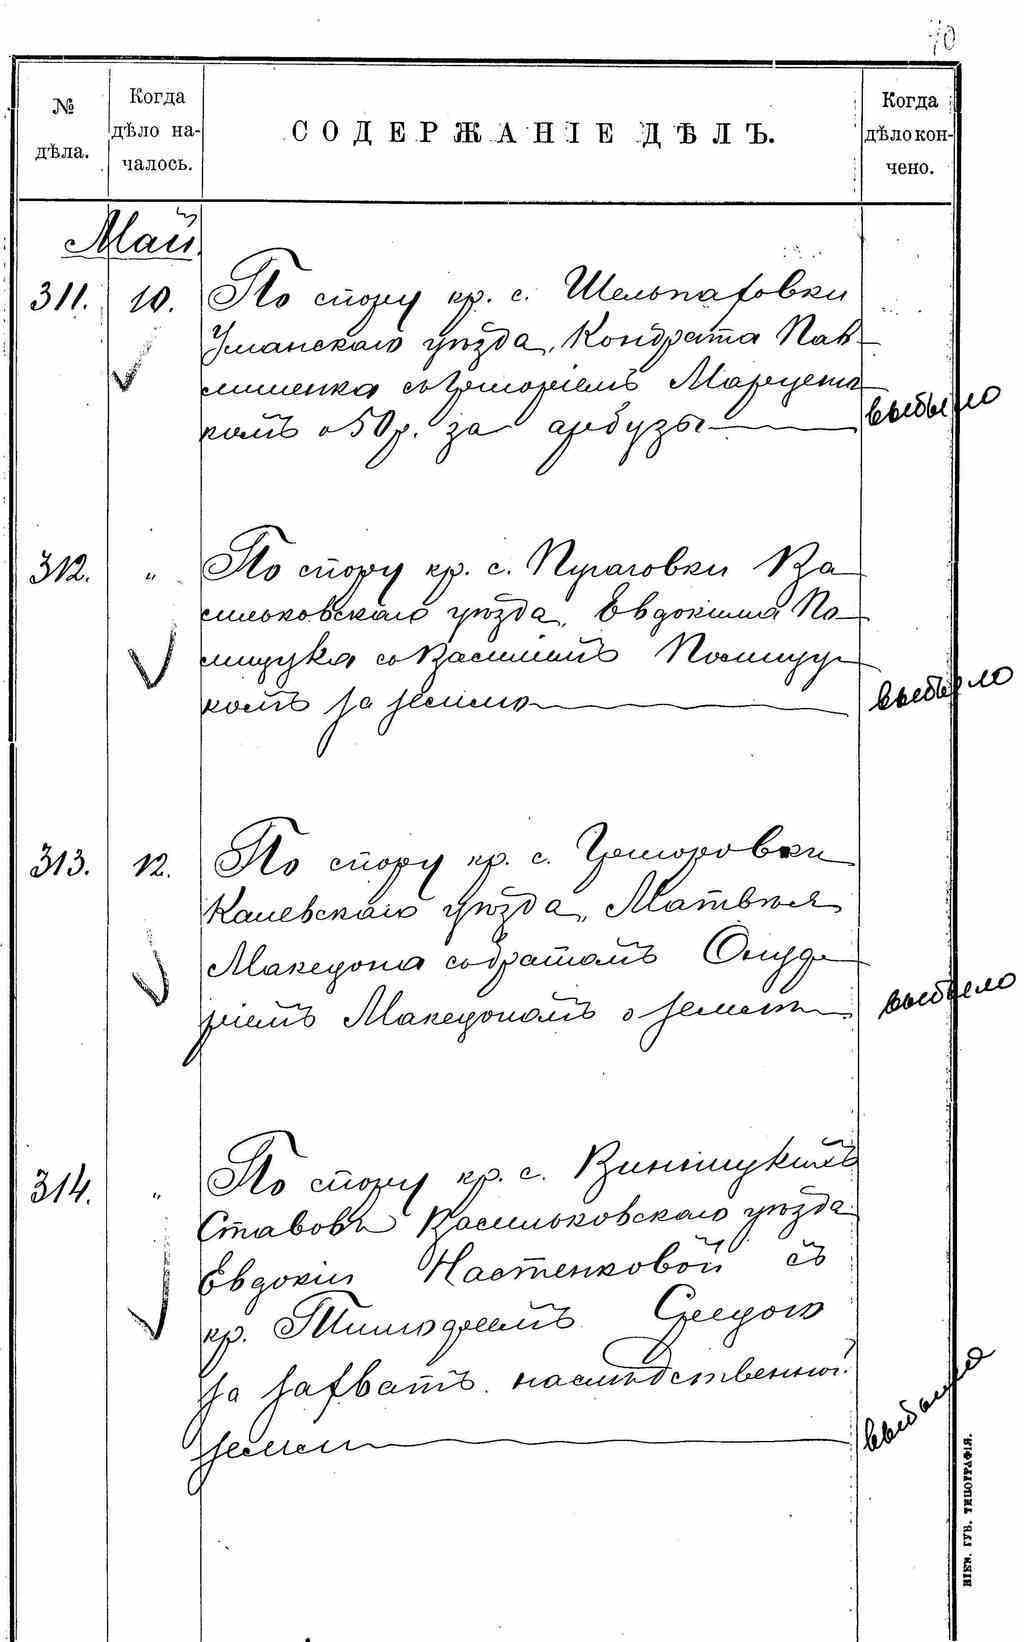 70
№ дѣла.
Когда дѣло началось.
СОДЕРЖАНІЕ ДѢЛЪ.
Когда дѣло кончено.
Май.
311. 10. По спору кр. с. Шельпаховки
Уманскаго уѣзда, Кондрата Пав-
лишенка съ Григоріемъ Марцень-
комъ о 50 р. за арбузы
выбыло
312. „ По спору кр. с. Пугачовки Ва-
сильковскаго уѣзда, Евдокима По-
лищука съ Василіемъ Полищу-
комъ за землю
выбыло
313. 12. По спору кр. с. Григоровки
Каневскаго уѣзда, Матвѣя
Македона съ братомъ Онуф-
ріемъ Македономъ о земли
выбыло
314. „ По спору кр. с. Винницкихъ
Ставовъ Васильковскаго уѣзда
Евдокіи Настенковой съ
кр. Тимофеемъ
за захватъ наслѣдственной
земли
выбыло
КІЕВ. ГУБ. ТИПОГРАФІЯ.